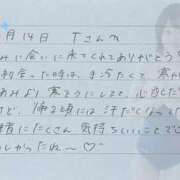 月14日 Tさんへ
みに会いに来てくれてありがとう
会った時は、手冷たくて 寒
あみより 寒そうにしてて、心配した
けど、帰る頃には 汗だくなっ
精にたくさん 気持ちいいことで
しかったね〜♡